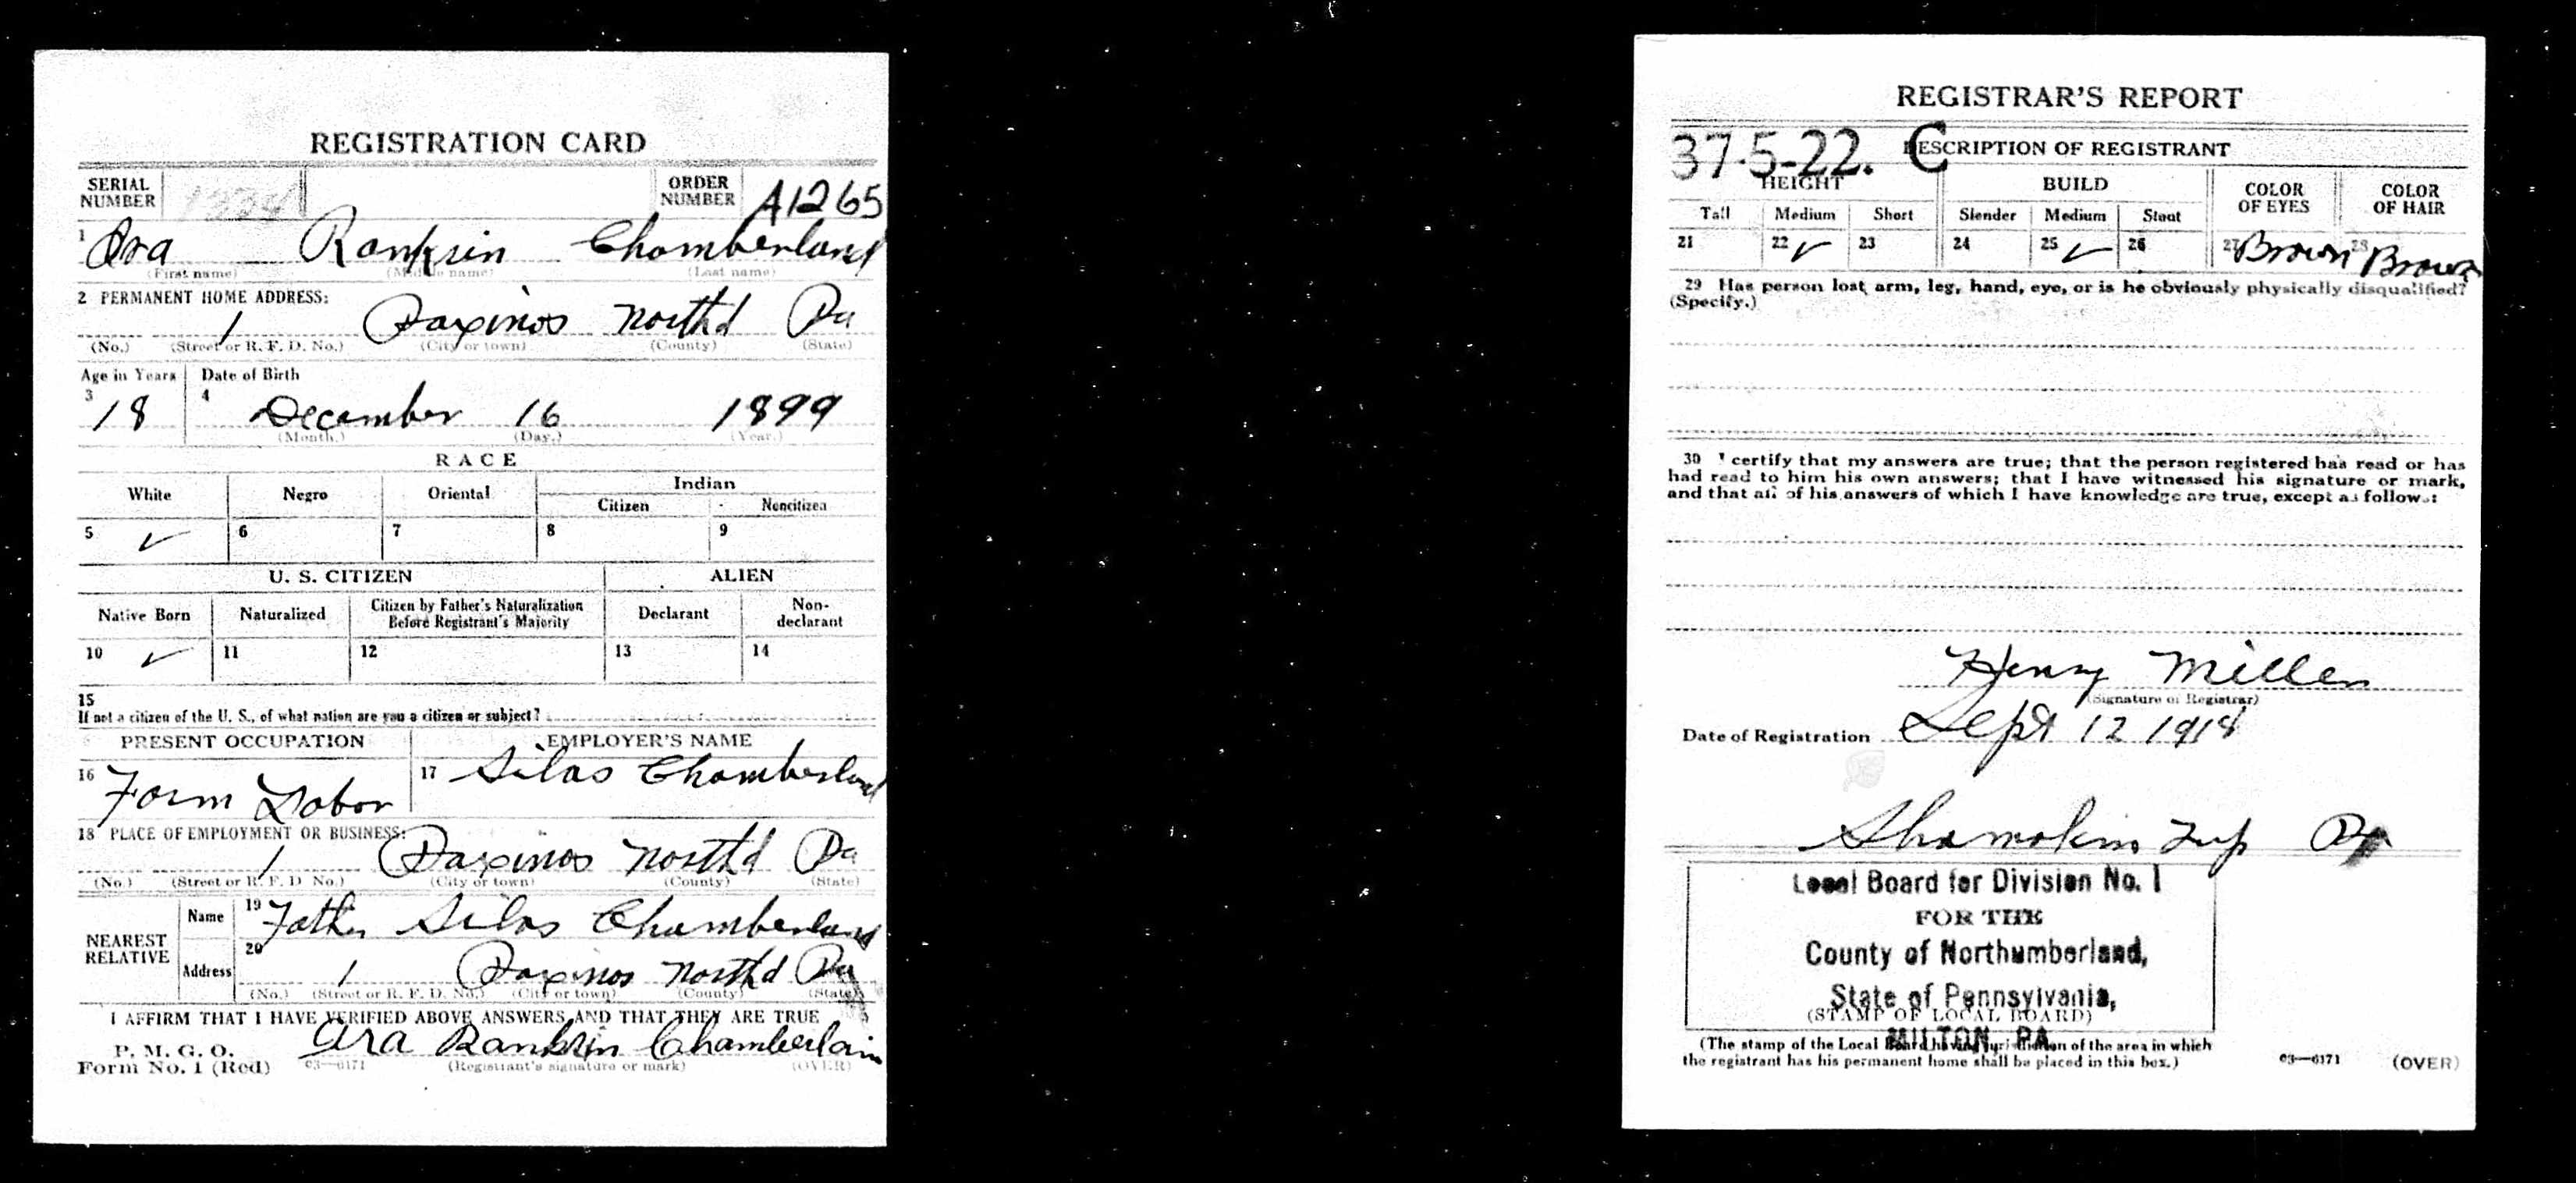 REGISTRATION CARD
SERIAL NUMBER ORDER NUMBER A1265
1 Ora Ranksin Chamberland
(First name) (Middle name) (Last name)
2 PERMANENT HOME ADDRESS:
1 Paxinos North'd Pa
(No.) (Street or R. F. D. No.) (City or town) (County) (State)
Age in Years Date of Birth
3 18 4 December 16 1899
(Month.) (Day.) (Year.)
RACE
White Negro Oriental Indian
Citizen Noncitizen
5 ✓ 6 7 8 9
U. S. CITIZEN ALIEN
Native Born Naturalized Citizen by Father's Naturalization Before Registrant's Majority Declarant Non-declarant
10 ✓ 11 12 13 14
15
If not a citizen of the U. S., of what nation are you a citizen or subject?
PRESENT OCCUPATION EMPLOYER'S NAME
16 Farm Labor 17 Silas Chamberland
18 PLACE OF EMPLOYMENT OR BUSINESS:
1 Paxinos North'd Pa
(No.) (Street or R. F. D. No.) (City or town) (County) (State)
NEAREST RELATIVE Name 19 Father Silas Chamberland
Address 20 1 Paxinos North'd Pa
(No.) (Street or R. F. D. No.) (City or town) (County) (State)
I AFFIRM THAT I HAVE VERIFIED ABOVE ANSWERS AND THAT THEY ARE TRUE
P. M. G. O.
Form No. 1 (Red) 03—6171 Ara Ranksin Chamberlain
(Registrant's signature or mark) (OVER)
REGISTRAR'S REPORT
37-5-22. C DESCRIPTION OF REGISTRANT
HEIGHT BUILD COLOR OF EYES COLOR OF HAIR
Tall Medium Short Slender Medium Stout
21 22 ✓ 23 24 25 ✓ 26 27 Brown 28 Brown
29 Has person lost arm, leg, hand, eye, or is he obviously physically disqualified?
(Specify.)
30 I certify that my answers are true; that the person registered has read or has
had read to him his own answers; that I have witnessed his signature or mark,
and that all of his answers of which I have knowledge are true, except as follows:
Henry Miller
(Signature of Registrar)
Date of Registration Sept 12 1918
Shamokin Twp Pa
Local Board for Division No. 1
FOR THE
County of Northumberland,
State of Pennsylvania,
(STAMP OF LOCAL BOARD)
MILTON, PA.
(The stamp of the Local Board having jurisdiction of the area in which
the registrant has his permanent home shall be placed in this box.)
03—6171 (OVER)